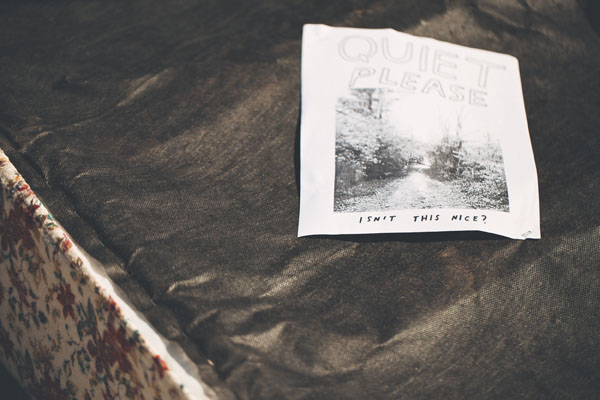 QUIET
PLEASE
ISN'T THIS NICE?